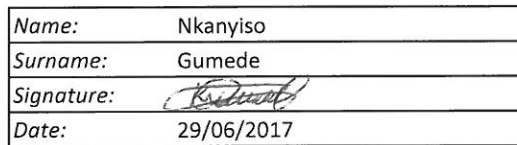 Name: Nkanyiso
Surname: Gumede
Signature:
Date: 29/06/2017